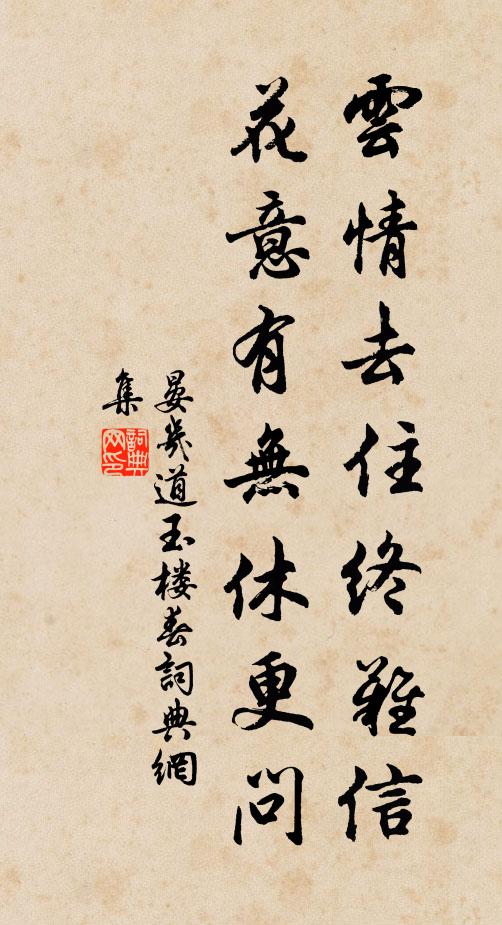 雲情去住終難信
花意有無休更問
晏幾道玉楼春詞典網
集
詞典
网印